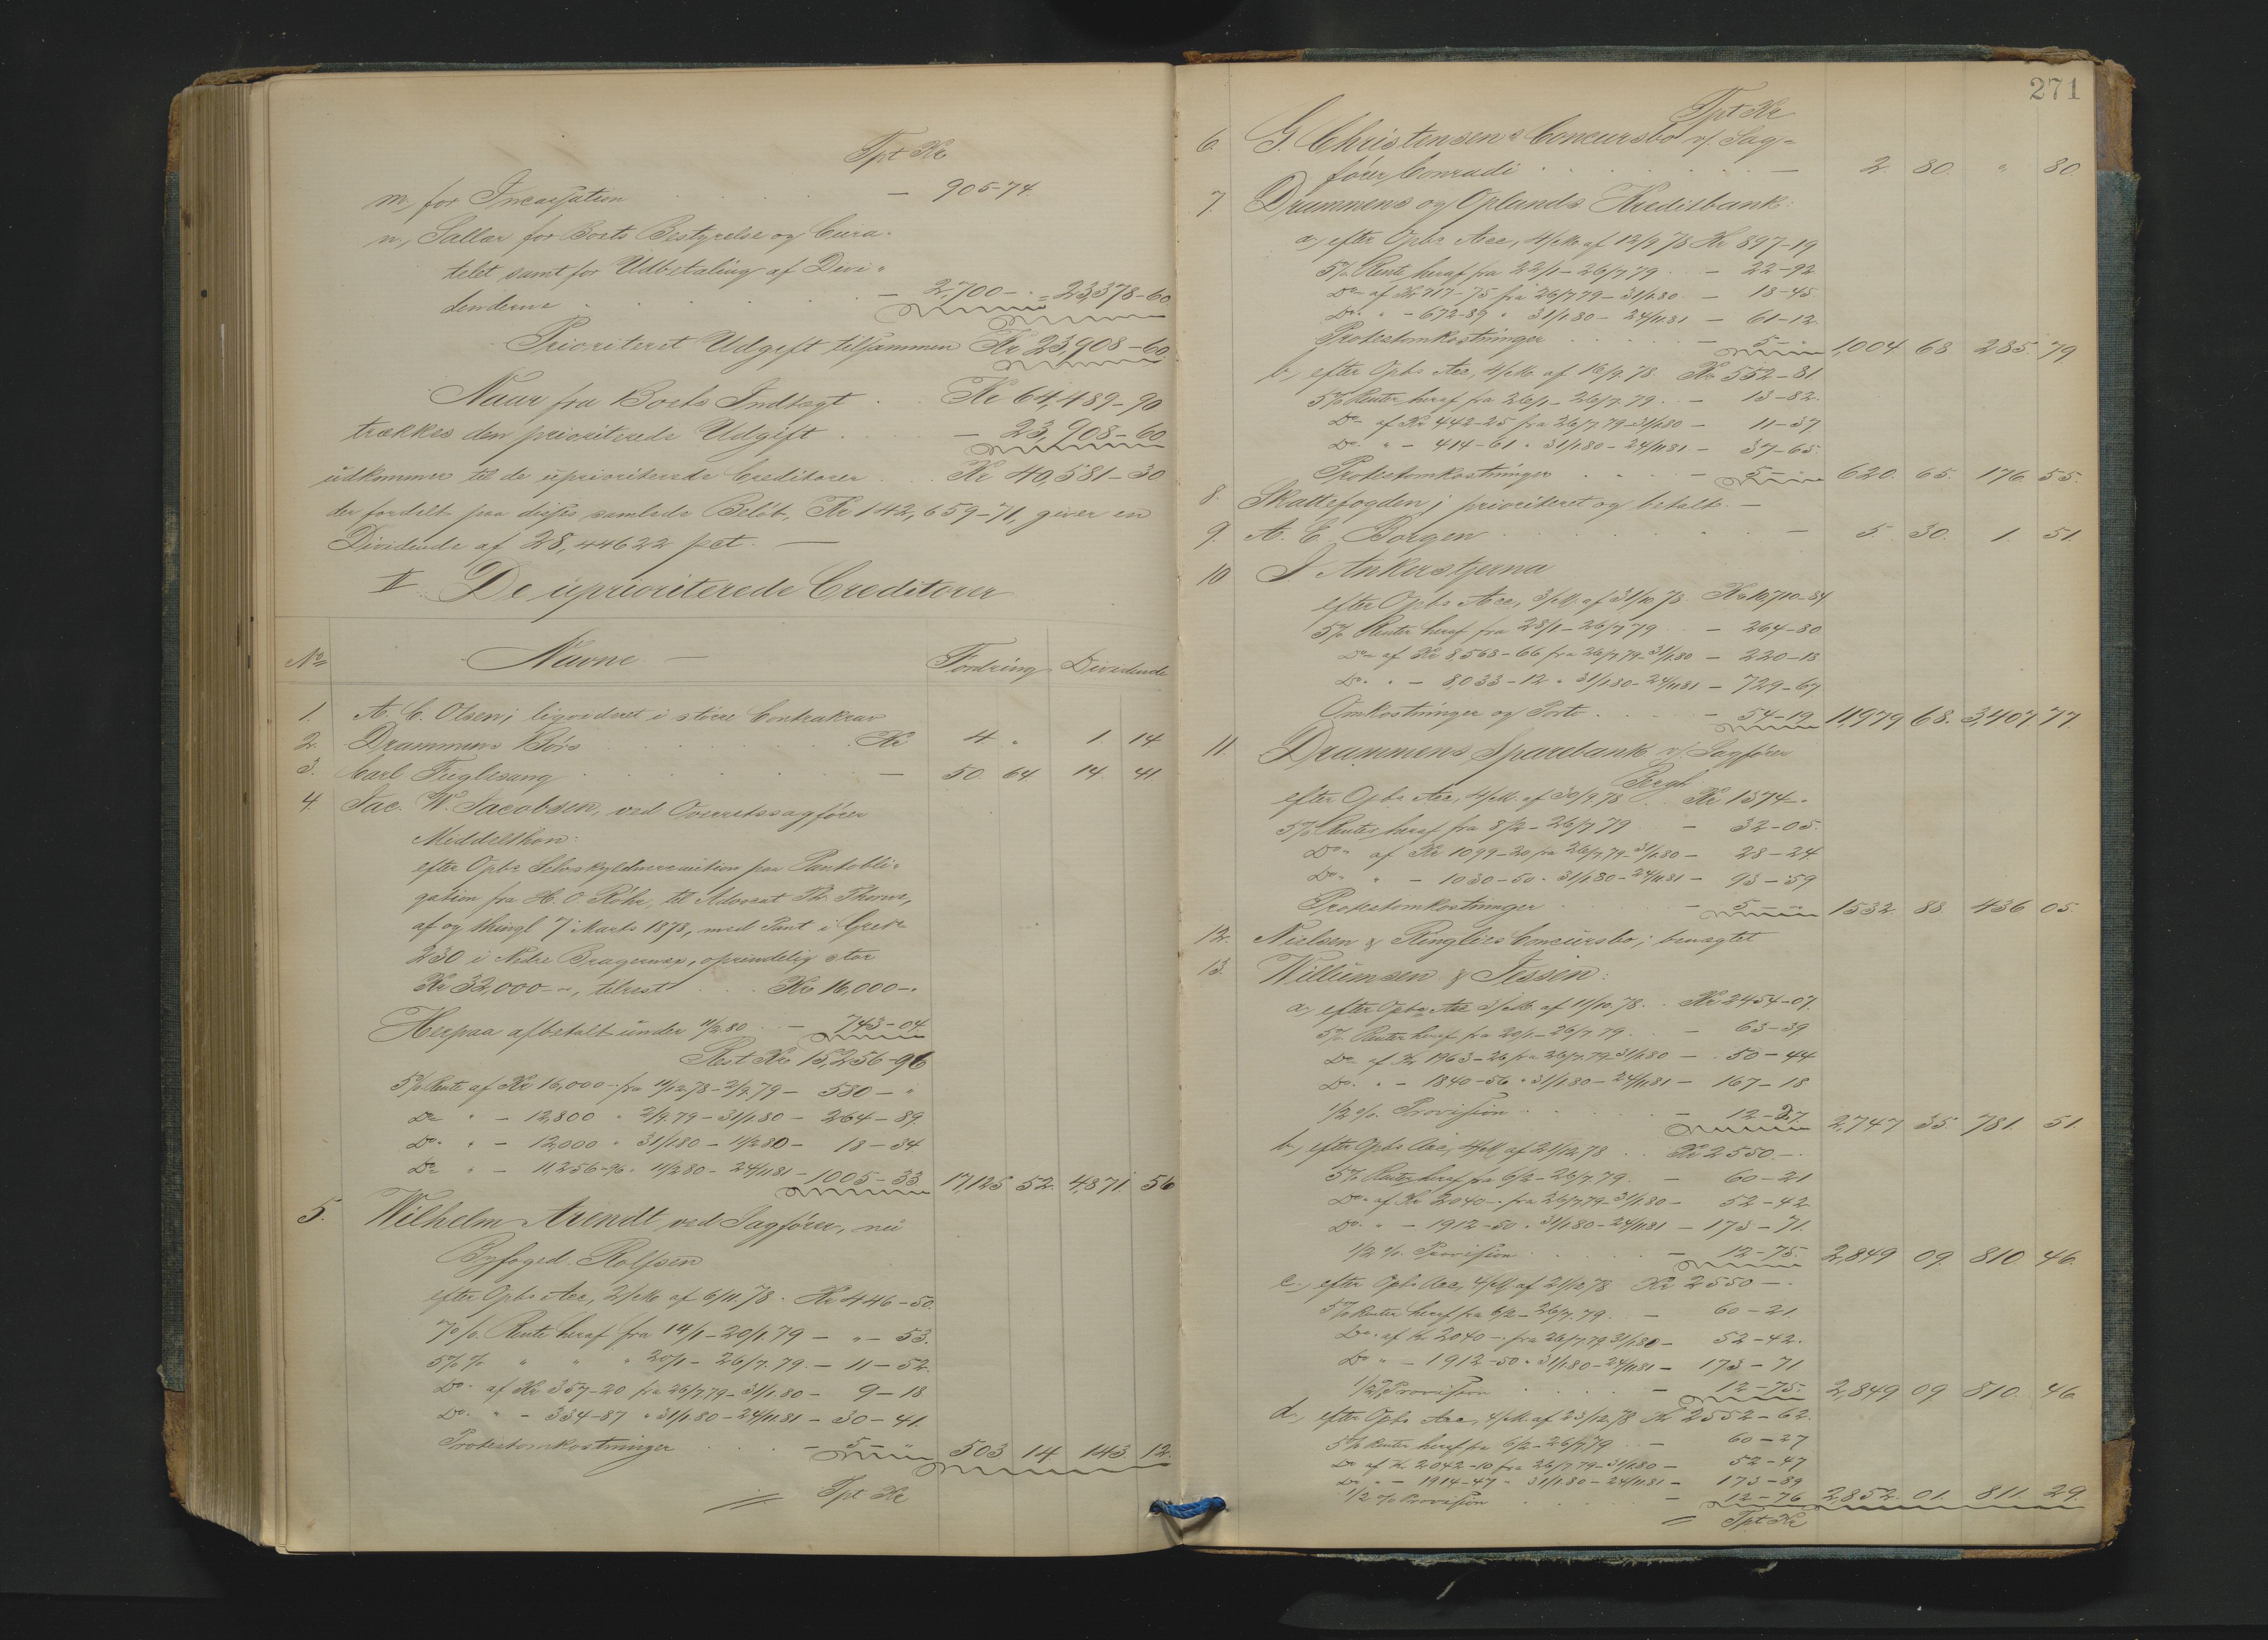 Tpt Kr
m, for Incassation — 905-74.
n, Sallær for Boets Bestyrelse og Cura-
telet samt for Udbetaling af Divi-
denderne — 2,700 - " = 23,378-60
Prioriteret Udgift tilsammen Kr 23,908-60
Naar fra Boets Indtægt Kr 64,489-90
trækkes den prioriterede Udgift — 23,908-60
udkommer til de uprioriterede Creditorer Kr 40,581-30
der fordelt paa disses samlede Beløb, Kr 142,659-71, giver en
Dividende af 28,44622 pct. —
V. De uprioriterede Creditorer
No Navne — Fordring Dividende
1. A. C. Olsen; liqvideret i større Contrakrav
2. Drammens Børs Kr 4 " 1. 14
3. Carl Fuglesang — 50. 64 14. 41.
4. Jac. W. Jacobsen, ved Overretssagfører
Middelthon:
efter Opbr Selvskyldnercaution paa Pantobli-
gation fra H. O. Röhr, til Advocat Th. Thorne,
af og thingl 7 Marts 1878, med Pant i Grdno
230 i Nedre Bragernæs, oprindelig stor
Kr 32,000 - ", tilrest Kr 16,000-"
Herpaa afbetalt under 11/2.80 — 743-04
Rest Kr 15,256-96
5% Rente af Kr 16,000-" fra 11/12.78-2/9.79 — 580-"
Do " — 12,800 " 2/9.79-31/1.80 — 264-89.
Do " — 12,000 " 31/1.80-11/2.80 — 18-34
Do " — 11,256-96 " 11/2.80-24/11.81 — 1005-33 17,125 52. 4,871. 56
5. Wilhelm Arendt ved Sagfører, nu
Byfoged Rolfsen
efter Opbr Acc, 2/m af 6/11.78. Kr 446-50.
7% Rente heraf fra 14/1-20/1.79 — "-53.
5% " " " 20/1-26/7.79. — 11-52.
Do af Kr 357-20 fra 26/7.79-31/1.80 — 9-18
Do " — 334-87 " 31/1.80-24/11.81 — 30-41.
Protestomkostninger — 5-" 503 14 143. 12.
Tpt Kr
271
Tpt Kr
6. G. Christensens Concursbo v/ Sag-
fører Conradi — 2. 80. " 80
7. Drammens og Oplands Kreditbank:
a, efter Opbr Acc, 4/m af 12/9 78 Kr 897-19
5% Rente heraf fra 22/1-26/7 79 — 22-92
Do af Kr 717-75 fra 26/7 79-31/1.80 — 18-45
Do " — 672-89 " 31/1.80-24/11.81 — 61-12
Protestomkostninger — 5-" 1,004 68 285. 79.
b, efter Opbr Acc, 4/m af 16/9.78. Kr 552-81.
5% Renter heraf fra 26/1-26/7.79. — 13-82.
Do af Kr 442-25 fra 26/7 79-31/1.80 — 11-37
Do " — 414-61 " 31/1.80-24/11.81 — 37-65.
Protestomkostninger — 5-" 620. 65. 176. 55.
8. Skattefogden; prioriteret og betalt. —
9. A. E. Borgen — 5. 30. 1 51.
10 J. Ankerstjerna
efter Opbr Acc, 3/m af 31/10.78. Kr 10,710-84
5% Renter heraf fra 28/1-26/7 79 — 264-80
Do af Kr 8,568-66 fra 26/7.79-31/1.80 — 220-18
Do " — 8033-12 " 31/1.80-24/11.81 — 729-67
Omkostninger og Porto — 54-19 11,979 68. 3,407. 77.
11. Drammens Sparebank v/ Sagfører
Bergh
efter Opbr Acc, 4/m af 30/9.78. Kr. 1374-"
5% Renter heraf fra 8/2-26/7 79 — 32-05.
Do af Kr 1099-20 fra 26/7.79-31/1.80 — 28-24
Do " — 1030-50 " 31/1.80-24/11.81 — 93-59
Protestomkostninger — 5-" 1532. 88. 436 05.
12. Nielsen & Ringlies Concursbo; benægtet
13. Willumsen & Jessen:
a, efter Opbr Acc 3/m af 11/10.78. Kr 2454-07.
5% Renter heraf fra 20/1-26/7 79. — 63-39
Do af Kr 1963-26 fra 26/7.79-31/1.80 — 50-44
Do " — 1840-56 " 31/1.80-24/11.81 — 167-18
1/2%. Provission — 12-27 2,747 35. 781. 51.
b, efter Opbr Acc, 4/m af 21/12.78 Kr 2550-"
5% Renter heraf fra 6/2-26/7.79. — 60-21
Do af Kr 2040-" fra 26/7.79-31/1.80 — 52-42
Do " — 1912-50 " 31/1.80-24/11.81 — 173-71.
1/2%. Provission — 12-75. 2,849 09. 810 46.
c, efter Opbr Acc, 4/m af 21/12/78 Kr 2550-"
5% Renter heraf fra 6/2-26/7.79. — 60-21
Do af Kr 2040-" fra 26/7.79 31/1.80 — 52-42.
Do " — 1912-50 " 31/1.80-24/11.81 — 173-71
1/2% Provission — 12-75. 2,849 09 810. 46
d, efter Opbr Acc, 4/m af 23/12.78 Kr 2552-62.
5% Renter heraf fra 6/2-26/7.79 — 60-27
Do af Kr 2042-10 fra 26/7.79-31/1.80 — 52-47
Do " — 1914-47 " 31/1.80-24/11.81 — 173-89
1/2% Provission — 12-76 2,852. 01. 811. 29.
Tpt Kr